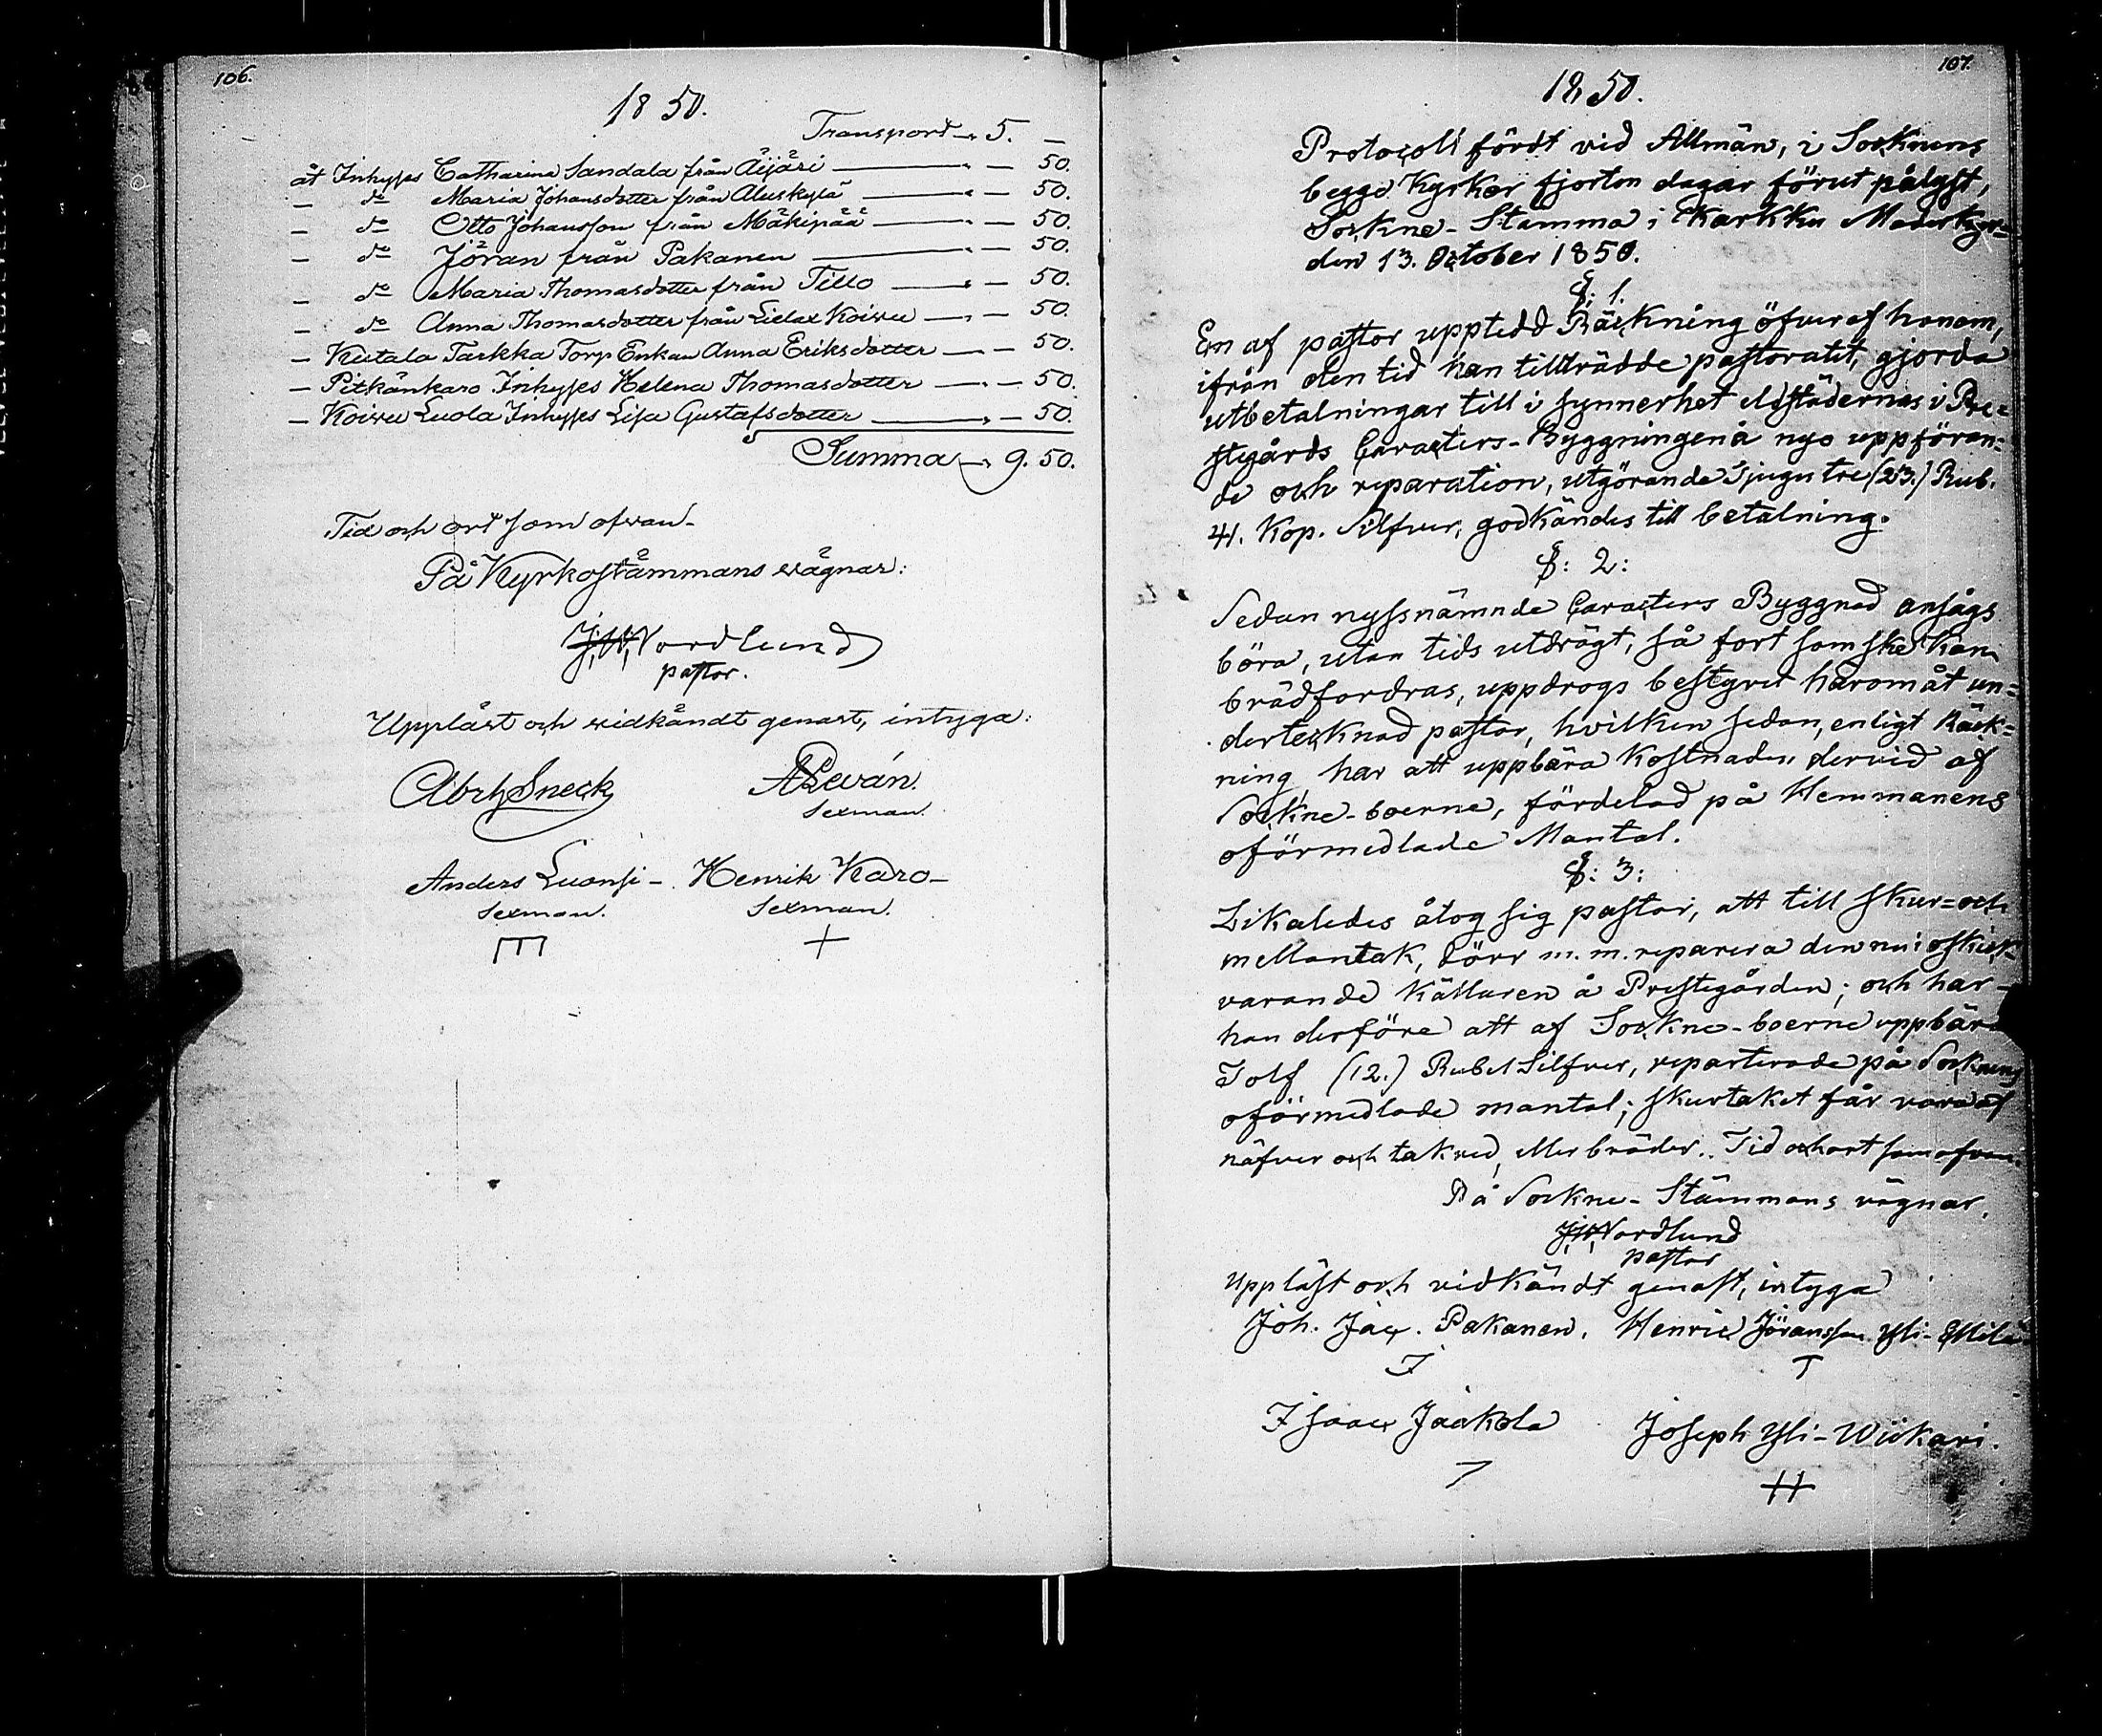 106.
1850.
Transport — 5. —
åt Inhyses Catharina Sandala från Äijäri — — 50.
— do Maria Johansdotter från Aluskylä — — 50.
— do Otto Johansson från Mäkipää — — 50.
— do Jöran från Pakanen — — 50.
— do Maria Thomasdotter från Tillo — — 50.
— do Anna Thomasdotter från Lielax Koivu — — 50.
— Kutala Tarkka Torp Enkan Anna Eriksdotter — — 50.
— Pitkänkaro Inhyses Helena Thomasdotter — — 50.
— Koivu Luola Inhyses Lisa Gustafsdotter — — 50.
Summa — 9. 50.
Tid och ort som ofvan.
På Kyrkostämmans vägnar:
Nordlund
pastor.
Uppläst och vidkändt genast, intyga:
Abrh Sneck
A Leván.
Sexman.
Anders Luonsi — Henrik Karo —
Sexman. Sexman.
107.
1850.
Protocoll fördt vid Allmän, i Socknens
begge Kyrkor fjorton dagar förut pålyst,
Sockne-Stamma i Karkku Moderkyr=
den 13. October 1850.
§: 1.
En af pastor upptedd Räckning öfver af honom,
ifrån den tid han tillträdde pastoratet, gjorda
utbetalningar till i synnerhet eldstädernas i Pre=
stgårds Caracters-Byggningen å nyo uppföran=
de och reparation, utgörande Tjugu tre (23.) Rub.
41. Kop. Silfver, godkändes till betalning.
§: 2:
Sedan nyssnämnde Caracters Byggnad ansågs
böra, utan tids utdrägt, så fort som ske kan
brädfordras, uppdrogs bestyret härom åt un=
dertecknad pastor, hvilken sedan, enligt Räck=
ning, har att uppbära kostnaden dervid af
Sockne-boerne, fördelad på Hemmanens
oförmedlade Mantal.
§: 3:
Likaledes åtog sig pastor, att till skur= och
mellantak, dörr m. m. reparera den nu i oskick
varande Källaren å Prestegården; och har
han derföre att af Sockne-boerne uppbära
Tolf (12.) Rubel Silfver, reparterade på Socknens
oförmedlade mantal; skurtaket får vara af
näfver och takved, eller bräder. Tid och ort som ofvan.
På Sockne-Stämmans vägnar,
Nordlund
pastor
Uppläst och vidkändt genast, intyga
Joh. Jac. Pakanen. Henric Jöransson Yli-
Isaac Jaakola Joseph Yli-Wiikari.